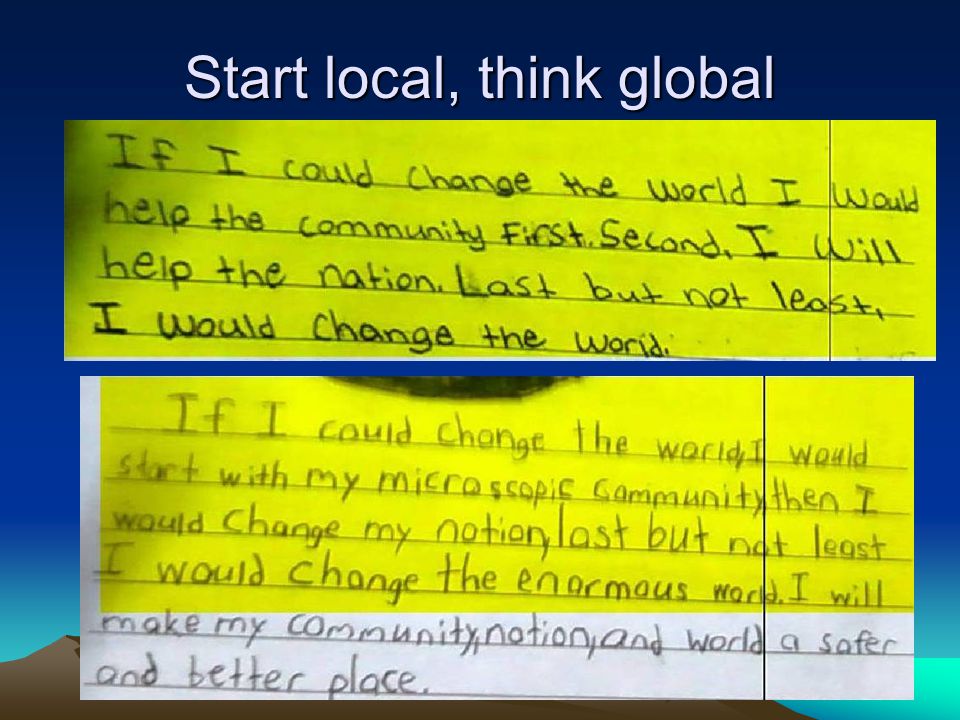 Start local, think global
If I could change the world I would
help the community First. Second, I will
help the nation. Last but not least,
I would change the world.
If I could change the world, I would
start with my microscopic community, then I
would change my nation, last but not least
I would change the enormous world. I will
make my community, nation, and world a safer
and better place.